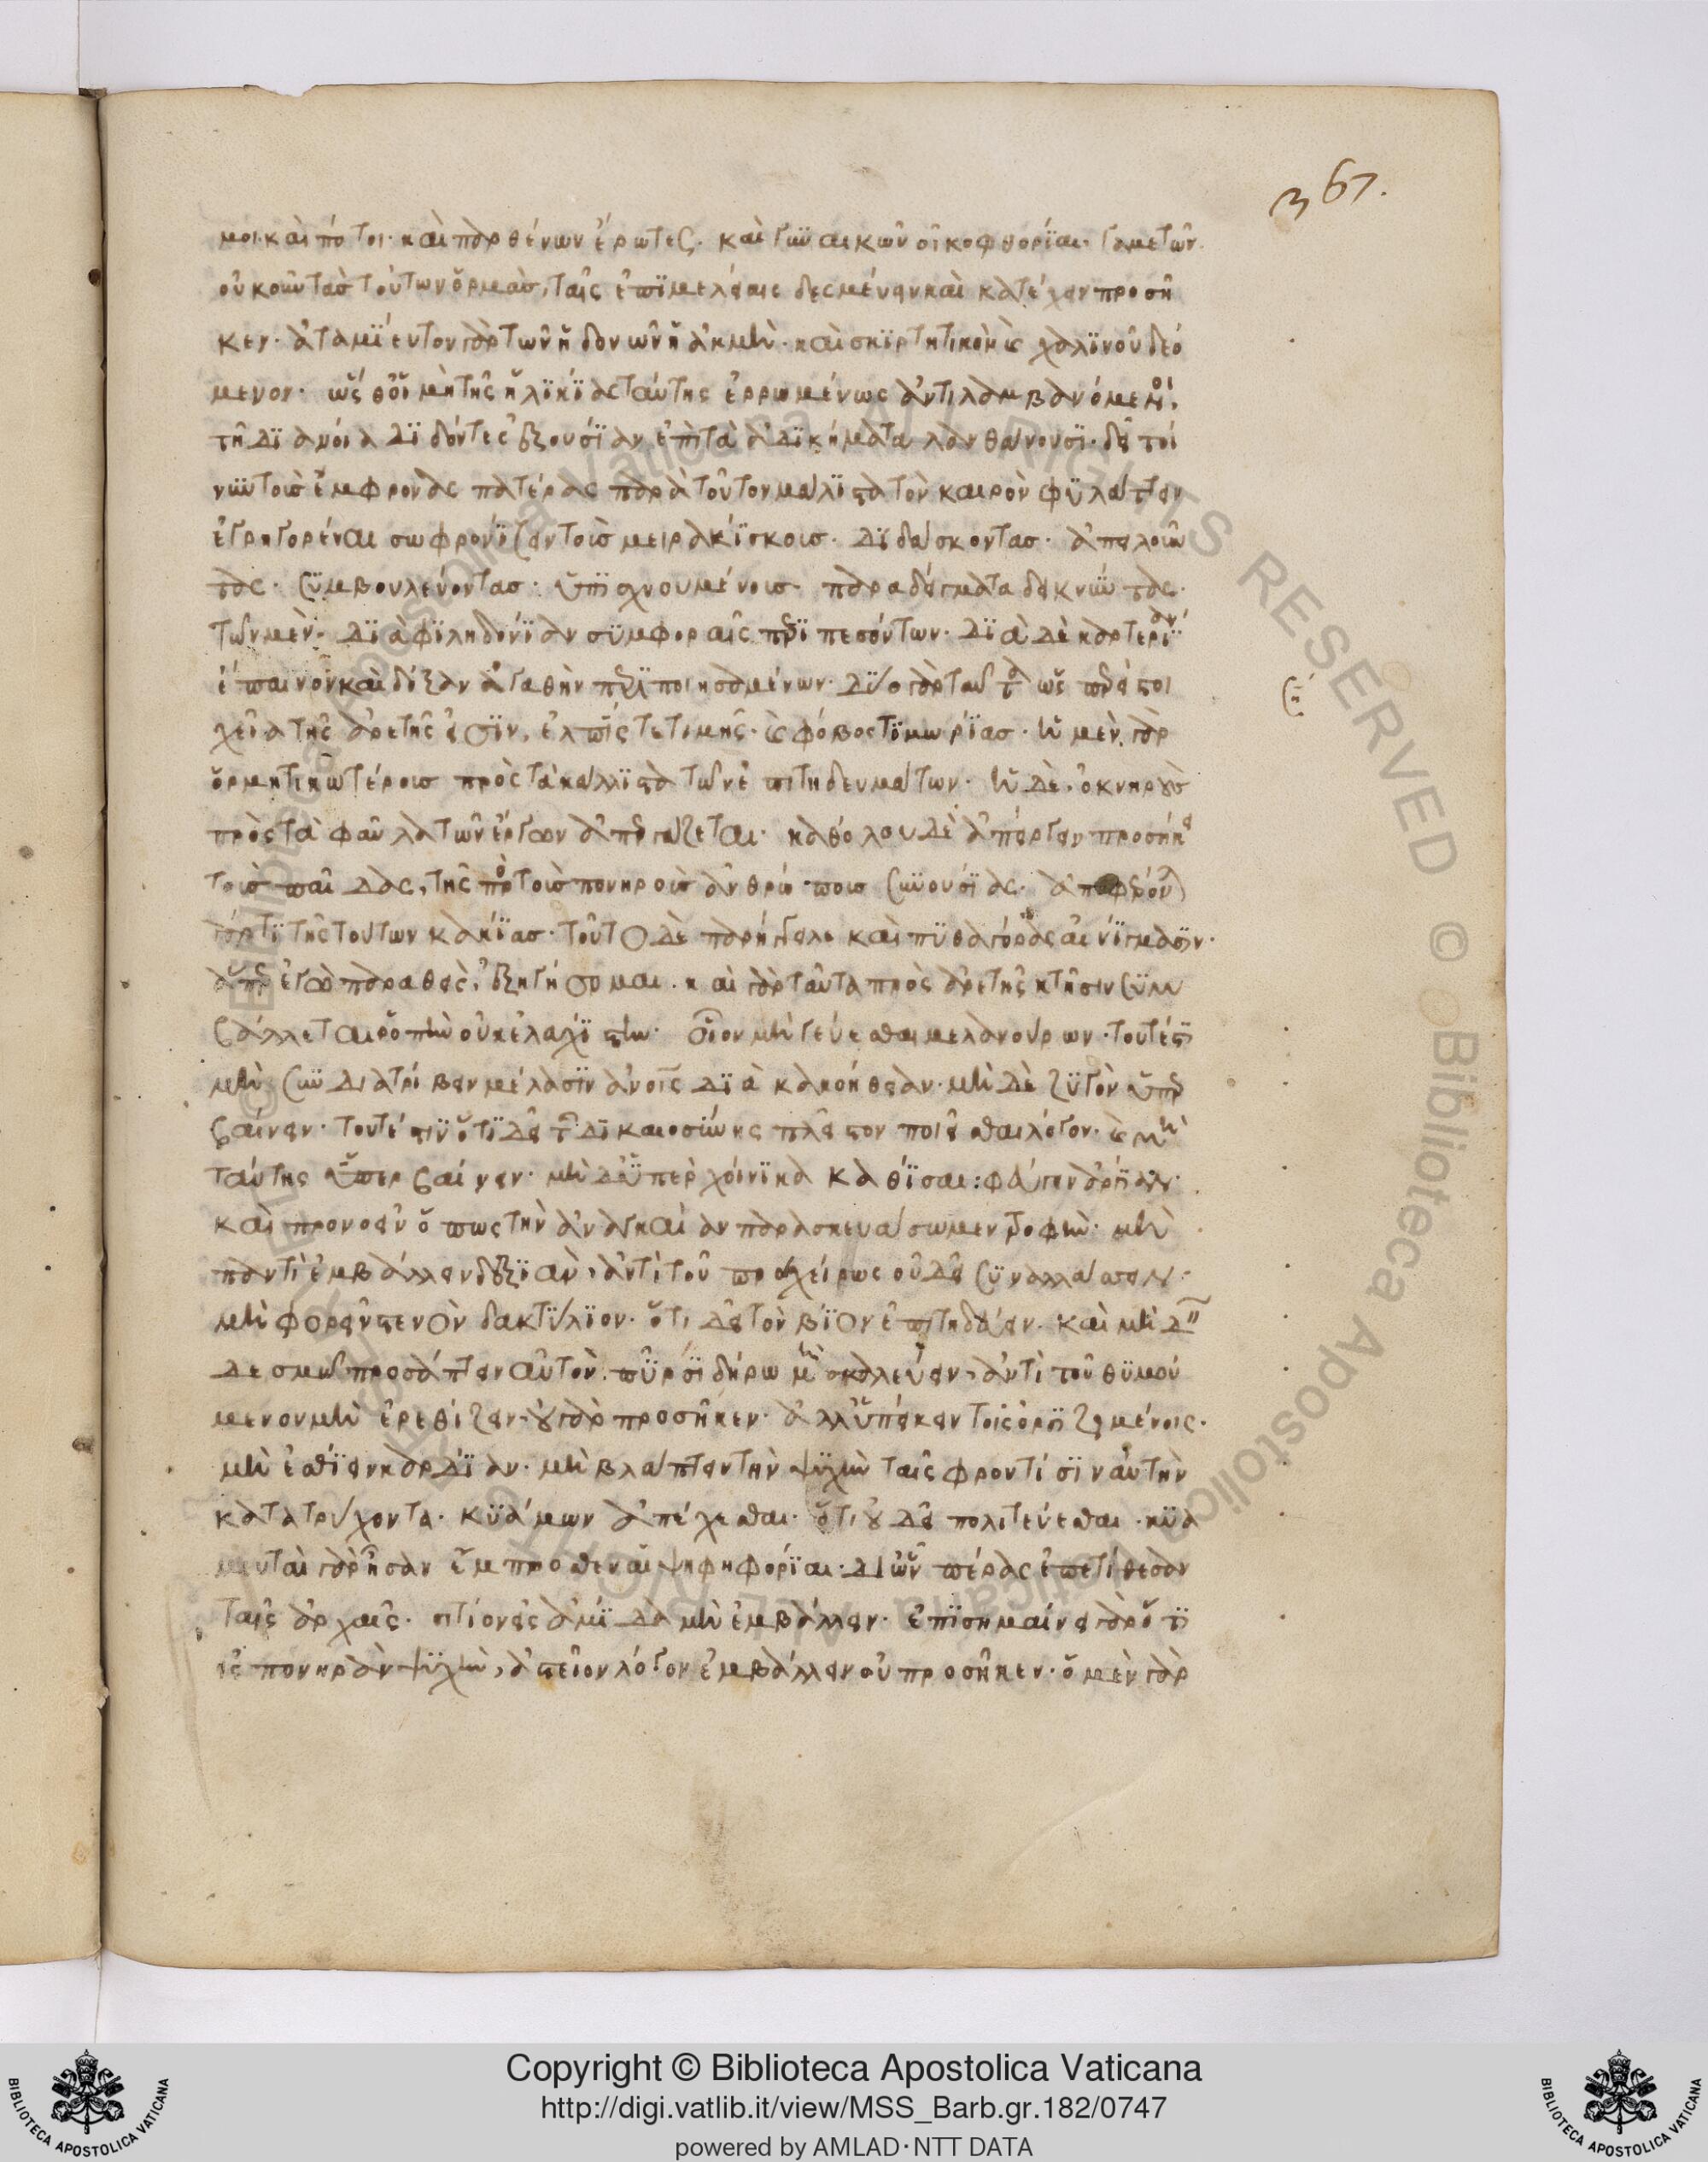 367.
μοι· καὶ πότοι· καὶ παρθένων ἔρωτες· καὶ γυναικῶν οἰκοφθορίαι· γαμετῶν.
οὐκοῦν τὰσ τούτων ὁρμὰσ, ταῖς ἐπϊμελείαις δεσμεύειν καὶ κατέχειν προσῆ
κεν· ἀταμΐευτον γὰρ τῶν ἡδονῶν ἡ ἀκμὴ· καὶ σκϊρτητικὸν καὶ χαλϊνοῦ δεό
μενον· ὥσθ' οἱ μὴ τῆς ἡλϊκΐας ταύτης ἐρρωμένως ἀντιλαμβανόμενοι,
τῆ ἀνοία δϊδόντες ἐξουσΐαν ἐπὶ τὰ ἀδϊκήματα λανθάνουσϊ· δεῖ τοί
νυν τοὺσ ἔμφρονας πατέρας παρὰ τοῦτον μάλϊστα τὸν καιρὸν φϋλάττειν
ἐγρηγορέναι σωφρονΐζειν τοὺσ μειρακΐσκουσ· δϊδάσκοντασ· ἀπειλοῦν
τας· συμβουλεύοντασ· ὑπϊσχνουμένουσ· παραδείγματα δεικνΰντας·
τῶν μὲν· δϊὰ φϊληδονΐαν σϋμφοραῖς περϊπεσόντων· δϊὰ δὲ καρτερΐαν
ἔπαινον καὶ δόξαν ἀγαθὴν περϊποιησαμένων· δΰο γὰρ ταῦτα ὡσπερεὶ στοι
χεῖα τῆς ἀρετῆς εἰσϊν, ἐλπΐς τε τιμῆς· καὶ φόβος τϊμωρΐασ· ἡ μὲν γὰρ
ὁρμητικωτέρουσ πρὸς τὰ κάλλϊστα τῶν ἐπιτηδευμάτων· ἡ δὲ, ὀκνηροὺσ
πρὸς τὰ φαῦλα τῶν ἔργων ἀπεργάζεται· καθόλου δὲ ἀπείργειν προσήκει
τοὺσ παῖδας, τῆς πρὸς τοὺσ πονηροὺσ ἀνθρώπουσ συνουσΐας·
γάρ τϊ τῆς τούτων κακΐασ· τοῦτο δὲ παρήγγειλε καὶ πϋθαγόρας αἰνΐγμασϊν·
ἅπερ ἐγὼ παραθεὶς, ἐξηγήσομαι· καὶ γὰρ ταῦτα πρὸς ἀρετῆς κτῆσιν σϋμ
βάλλεται ῥοπὴν οὐκ ἐλαχΐστην· οἷον μὴ γεύεσθαι μελανούρων· τουτέστι
μὴ συνδιατρίβειν μέλασϊν ἀνοις δϊὰ κακοήθειαν· μὴ δὲ ζϋγὸν ὑπερ
βαίνειν· τουτέστιν ὅτϊ δεῖ τῆς δϊκαιοσύνης πλεῖστον ποιεῖσθαι λόγον· καὶ μὴ
ταύτης ὑπερβαίνειν· μὴ δ' ὑπὲρ χοίνϊκα καθΐσαι: φεύγειν ἀργΐαν·
καὶ προνοεῖν ὅπως τὴν ἀναγκαίαν παρασκευάσωμεν τροφὴν· μὴ
παντὶ ἐμβάλλειν δεξϊὰν, ἀντὶ τοῦ προχείρως οὐ δεῖ σϋναλλάσσειν·
μὴ φορεῖν στενὸν δακτΰλϊον· ὅτι δεῖ τὸν βΐον ἐπιτηδεύειν· καὶ μὴ δεῖ
δεσμῶ προσάπτειν αὐτόν· πῦρ σϊδήρω μὴ σκαλεύειν, ἀντὶ τοῦ θϋμού
μενον μὴ ἐρεθίζειν· οὐ γὰρ προσῆκεν· ἀλλ' ὑπείκειν τοῖς ὀργϊζομένοις·
μὴ ἐσθΐειν καρδΐαν· μὴ βλάπτειν τὴν ψϋχὴν ταῖς φροντίσϊν αὐτὴν
κατατρύχοντα· κϋάμων ἀπέχεσθαι· ὅτι οὐ δεῖ πολιτεύεσθαι· κϋα
μευταὶ γὰρ ἦσαν ἔμπροσθεν αἱ ψηφηφορΐαι· δι' ὧν πέρας ἐπετίθεσαν
ταῖς ἀρχαῖς· σιτίον εἰς ἀμΐδα μὴ ἐμβάλλειν· ἐπϊσημαίνει γὰρ ὅτϊ
εἰς πονηρὰν ψϋχὴν, ἀστεῖον λόγον ἐμβάλλειν οὐ προσῆκεν· ὁ μὲν γὰρ
Copyright © Biblioteca Apostolica Vaticana
http://digi.vatlib.it/view/MSS_Barb.gr.182/0747
powered by AMLAD·NTT DATA
BIBLIOTECA APOSTOLICA VATICANA
BIBLIOTECA APOSTOLICA VATICANA